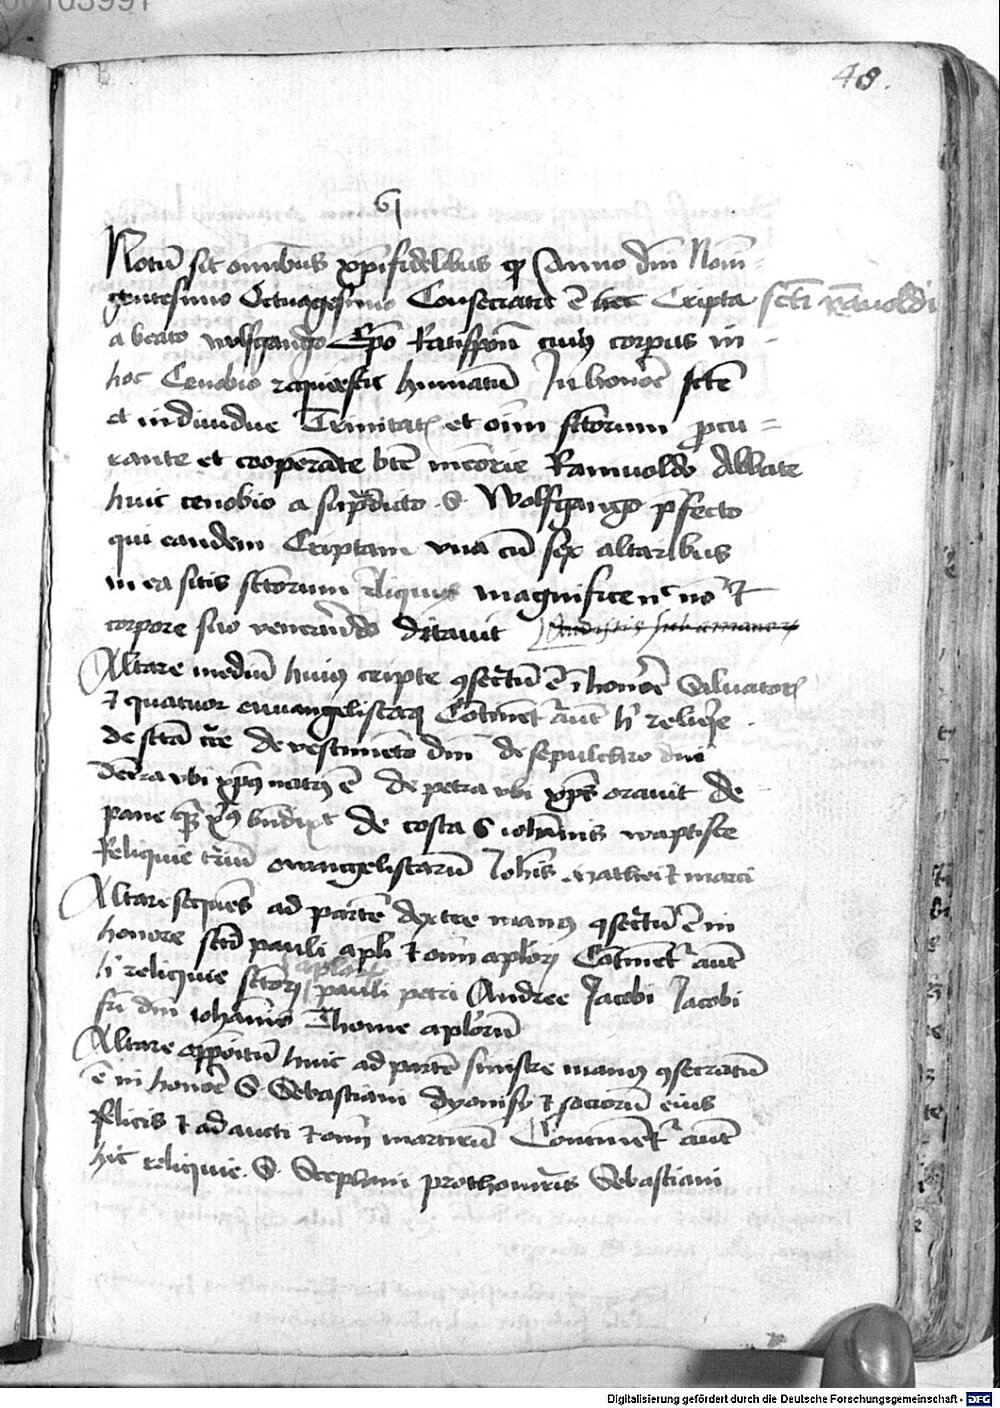 00103991
48.
6
Notū sit omnibus xp̄ifidelibus qp Anno dn̄i Nom̄
gentesimo Octuagesimo Consecrata ē hec Cripta scti ramuoldi
a beato wolfgango Ep̄o Ratispon̄ cuiꝰ corpus in
hoc Cenobio requiescit humatū In honorē scte
et indiuidue Trinitatꝭ et oīm sctorum pcu
rante et cooperāte btē mēorie Ramuoldo Abbate
huic cenobio a sup̄dicto S Wolfgango p̄fecto
qui eandem Criptam vna cū sex altaribus
in ea sitis sctorum reliquijs magnifice nc̄ nō et
corpore suo venerādo ditauit
Altare mediū huiꝰ cripte ꝯsecrtū ē ī honorē Saluatorꝭ
et quatuor euuangelistarꝫ Cōtinētr aūt hr̄ reliqe
de sctā cr̄ce de vestimēto dn̄i de sepulchro dn̄i
De tr̄ra vbi xp̄us natꝰ ē de petra vbi xp̄s orauit de
pane quē xp̄s bn̄dixit de costa S iohānis waptiste
Reliquie triū ewangelistarū Ioh̄is mathei et marci
Altare sequēs ad partē dextre manꝰ ꝯsecrtū ē in
honore scti pauli apl̄i et oīm apl̄orꝫ Cōtinētr aūt
hr̄ reliquie sctorꝫ aplorꝫ pauli petri Andree Jacobi Jacobi
fr̄i dn̄i iohānis Thome aplorū
Altare oppōitū huic ad partē sinistre manꝰ ꝯsecratū
ē in honorē S. Sebastiani dyonisy et sociorū eius
felicis et adaucti et oīm martirū Continētr aūt
hic reliquie. S. Stephani prothomr̄is Sebastiani
Digitalisierung gefördert durch die Deutsche Forschungsgemeinschaft - DFG